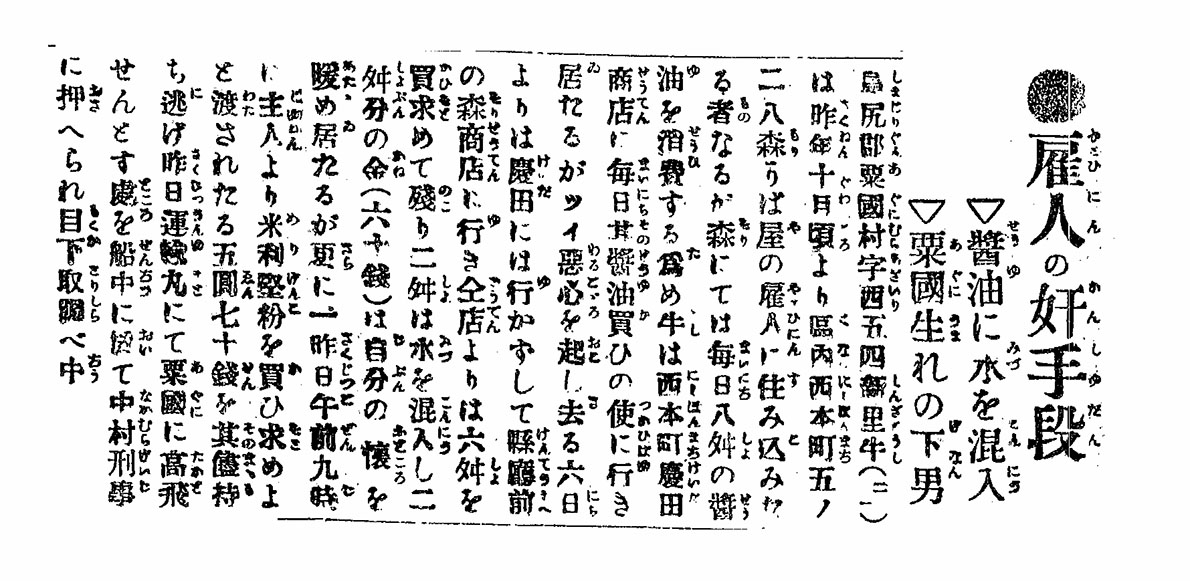 ●雇人の奸手段
▽醬油に水を混入
▽粟國生れの下男
島尻郡粟國村字西五四新里牛(二一)
は昨年十月頃より區內西本町五ノ
二八森そば屋の雇人に住み込みた
る者なるが森にては每日八舛の醬
油を消費する爲め牛は西本町慶田
商店に每日其醬油買ひの使に行き
居たるがツイ惡心を起し去る六日
よりは慶田には行かずして縣廳前
の森商店に行き仝店よりは六舛を
買求めて殘り二舛は水を混入し二
舛分の金(六十錢)は自分の懷を
暖め居たるが更に一昨日午前九時
に主人より米利堅粉を買ひ求めよ
と渡されたる五圓七十錢を其儘持
ち逃げ昨日運輸丸にて粟國に高飛
せんとす處を船中に於て中村刑事
に押へられ目下取調べ中